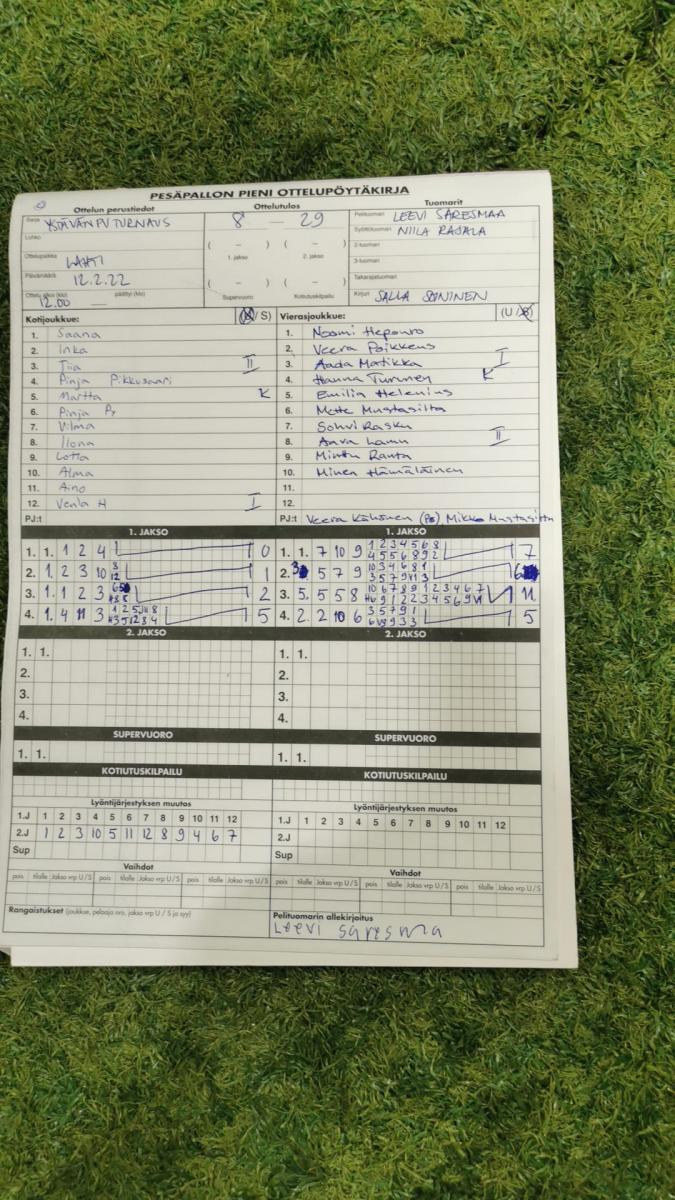 PESÄPALLON PIENI OTTELUPÖYTÄKIRJA
Ottelun perustiedot Ottelutulos Tuomarit
Sarja YSTÄVÄNPV TURNAUS 8 – 29 Pelituomari LEEVI SARESMAA
Lohko Syöttötuomari NIILA RAJALA
( – ) ( – ) 2-tuomari
Ottelupaikka LAHTI 1. jakso 2. jakso 3-tuomari
Päivämäärä 12.2.22 ( – ) ( – ) Takarajatuomari
Ottelu alkoi (klo) 12.00 päättyi (klo) Supervuoro Kotiutuskilpailu Kirjuri SALLA SOININEN
Kotijoukkue: (U/S) Vierasjoukkue: (U/S)
1. Saana 1. Noomi
2. Inka 2. Veera
3. Tiia II 3. Aada Matikka I
4. Pinja Pikkusaari 4. Hanna Turunen K
5. Martta K 5. Emilia Helenius
6. Pinja Py 6. Mette Mustasilta
7. Vilma 7. Sohvi Rasku
8. Ilona 8. II
9. Lotta 9. Minttu Ranta
10. Alma 10. Minea Hämäläinen
11. Aino 11.
12. Venla H I 12.
PJ:t PJ:t Veera Kähönen (Ps) Mikko Mustasilta
1. JAKSO 1. JAKSO
1. 1. 1 2 4 1 0 1. 1. 7 10 9 1 2 3 4 5 6 8 7
4 5 5 6 8 9 2
2. 1. 2 3 10 3 12 1 2. 5 7 9 10 3 4 6 8 1 6
3. 1. 1 2 3 2 3. 5. 5 5 8 10 6 7 8 9 1 2 3 4 6 7 11
4. 1. 4 11 3 5 4. 2. 2 10 6 3 5 7 9 1 5
2. JAKSO 2. JAKSO
1. 1. 1. 1.
2. 2.
3. 3.
4. 4.
SUPERVUORO SUPERVUORO
1. 1. 1. 1.
KOTIUTUSKILPAILU KOTIUTUSKILPAILU
Lyöntijärjestyksen muutos Lyöntijärjestyksen muutos
1.J 1 2 3 4 5 6 7 8 9 10 11 12 1.J 1 2 3 4 5 6 7 8 9 10 11 12
2.J 1 2 3 10 5 11 12 8 9 4 6 7 2.J
Sup Sup
Vaihdot Vaihdot
pois tilalle Jakso vrp U/S pois tilalle Jakso vrp U/S pois tilalle Jakso vrp U/S pois tilalle Jakso vrp U/S pois tilalle Jakso vrp U/S pois tilalle Jakso vrp U/S
Rangaistukset (joukkue, pelaaja nro, jakso vrp U / S ja syy) Pelituomarin allekirjoitus
Leevi saresma